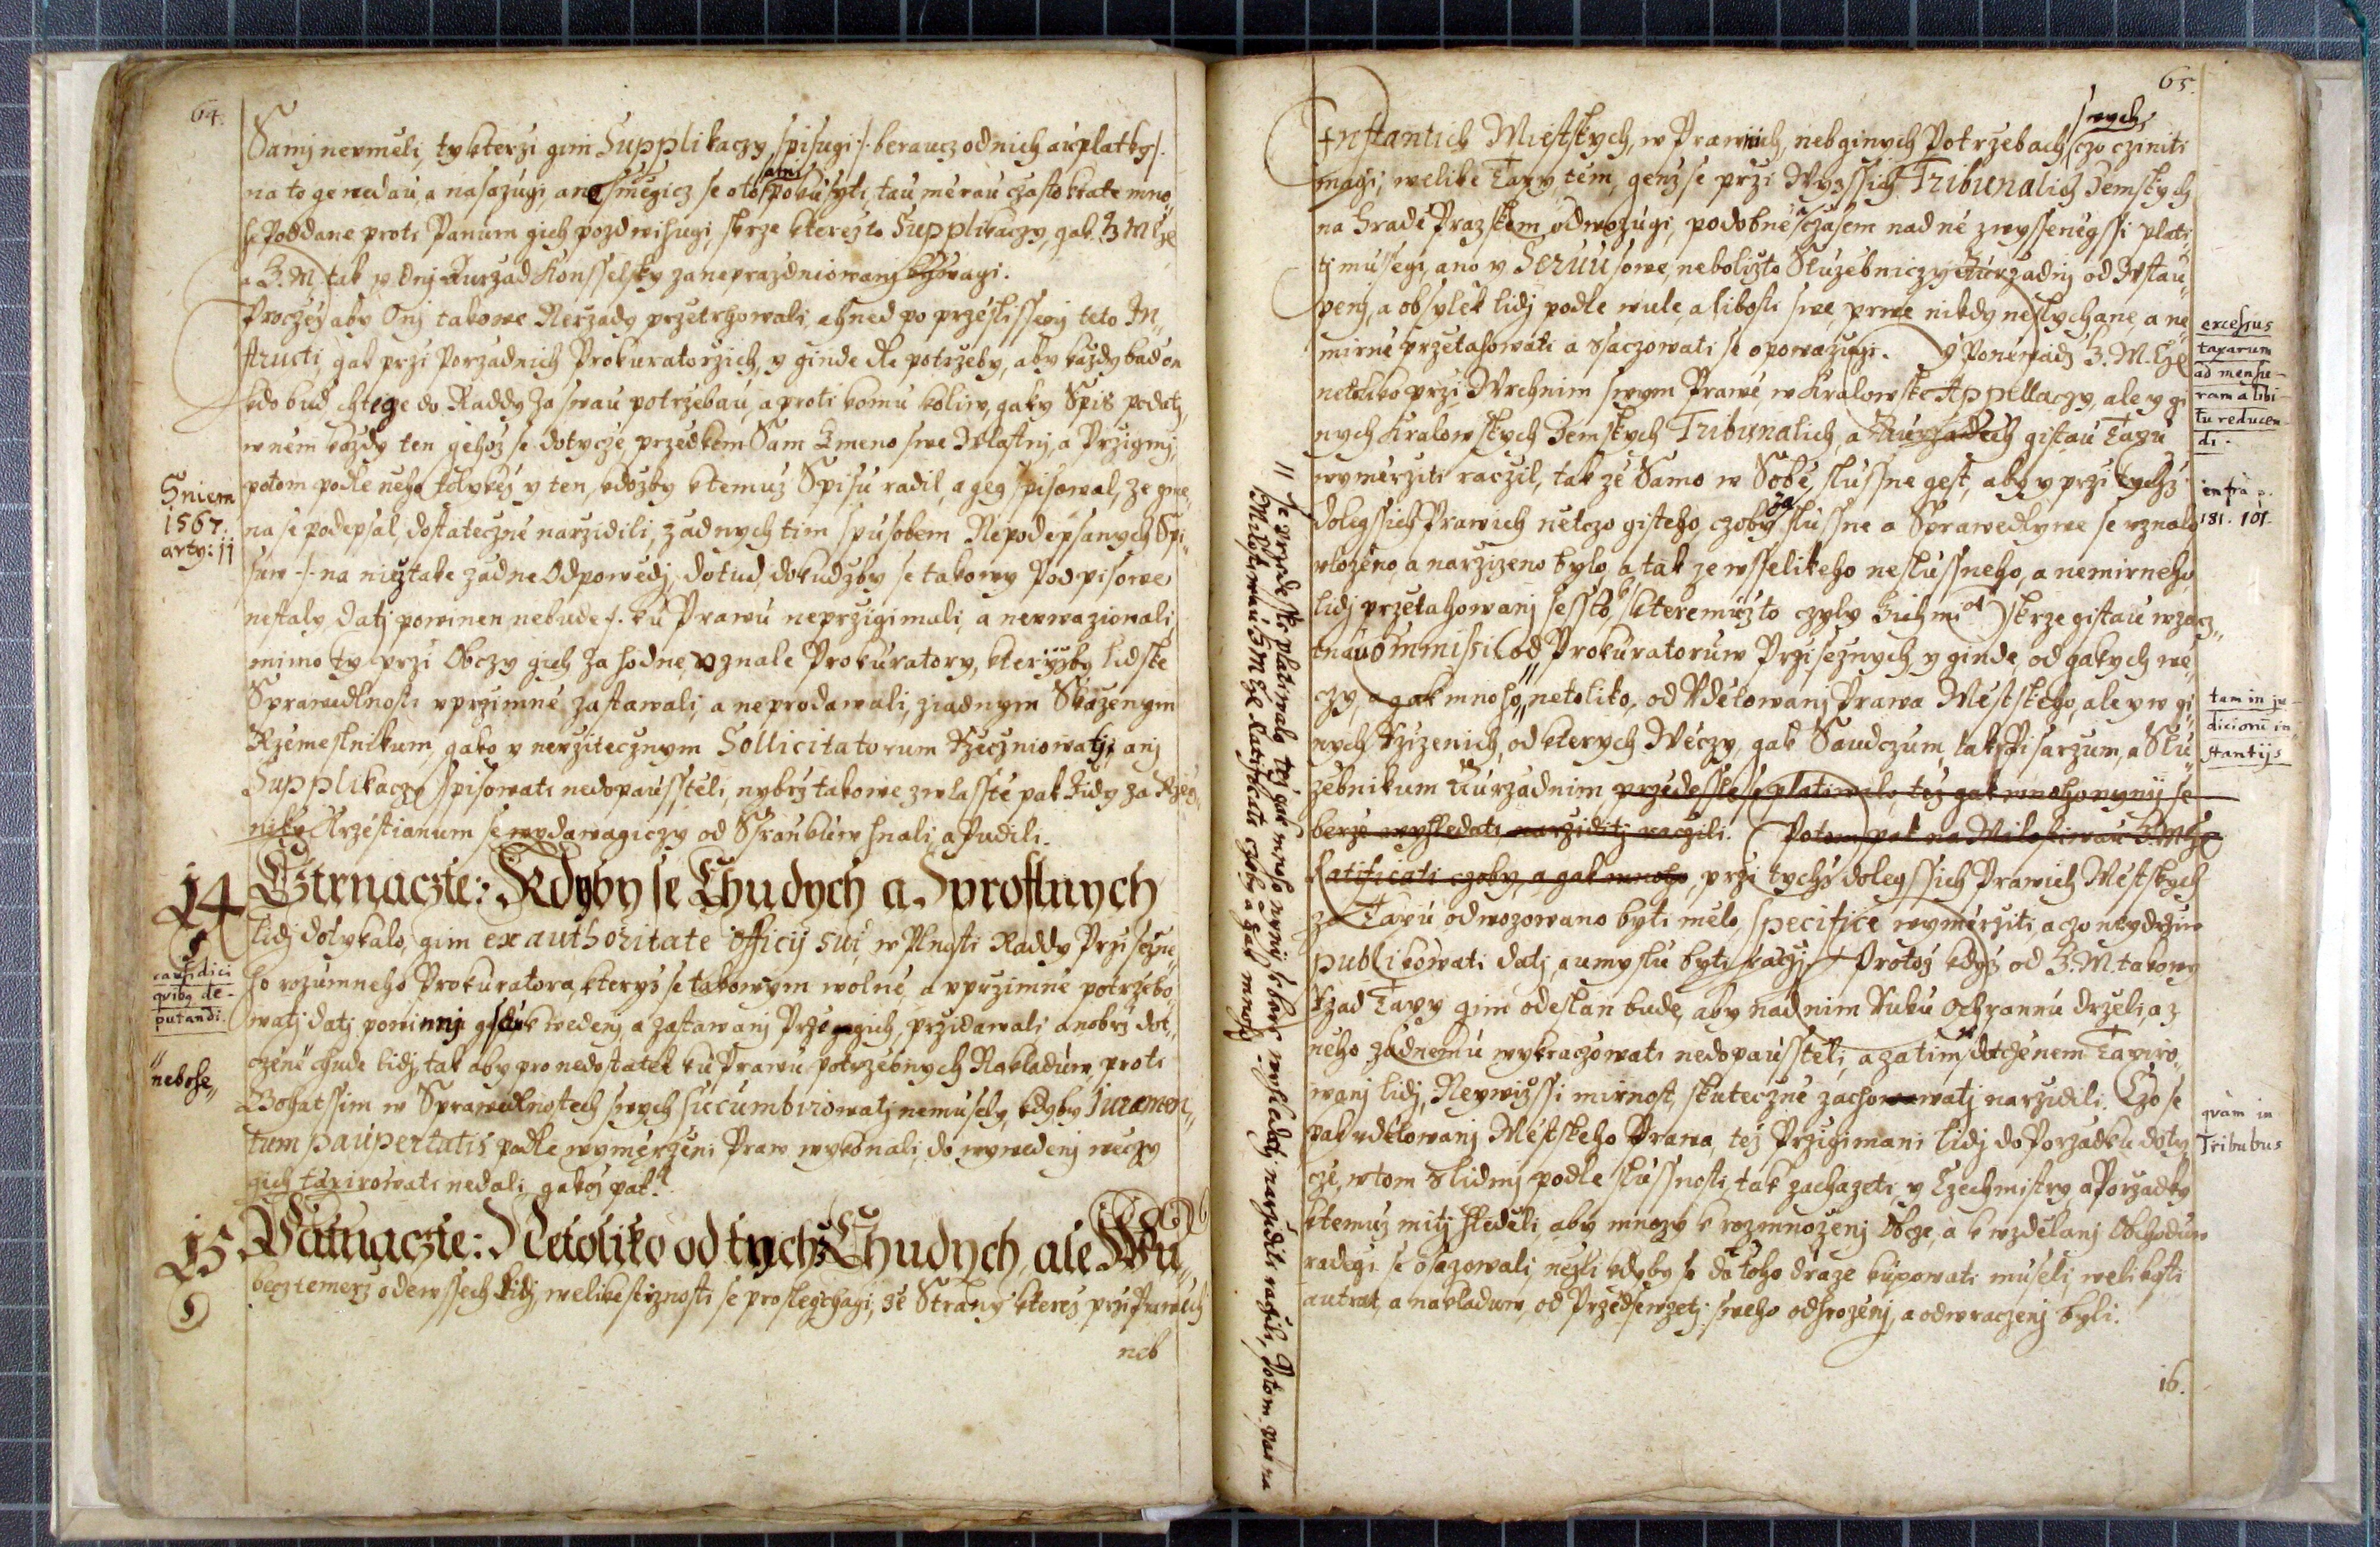 64.
Samj neumėli, ty kterzi gim Supplikaczy spisugi ·/· beraucz od nich auplatky ·/·
na to ge nedau, a nasazugi anė smėgicz se o to aniž pokusyti, tau mėrau czastokrate mno,,
hė Poddane proti Panum gich pozdwihugi, skrze kterežto Supplikaczy, gak G M Cze
a G. M. tak y dnj Aurzad Konsselsky zaneprazdniowanj bywagi.
Proczež aby Onj takowe Nerzady przetrhowali, a hned po przėslissenj teto In,,
structi, gak przi Porzadnich Prokuratorzich, y ginde dle potrzeby, aby každy bud on
kdo bud, chtege do Raddy za swau potrzebau, a proti komu koliw, gaky Spis podatj,
w nėm každy ten gehož se dotycze, przedkem Sam Gmeno swe Wlastnj, a Przigmj,
potom podle nėho tolykėž y ten, kdožby k temuž Spisu radil, a geg spisowal, ze gme,,
Sniem
1567.
arty: 11
na se podepsal, dostatecznė narzidili, žadnych tim spusobem Nepodepsanych Spi,,
suw ·/· na niežtake žadne Odpowėdj, dotud, dokudžby se takowy Podpisowe
nestaly, datj powinen nebude ·/· ku Prawu neprzigimali, a neuwazionali,
mimo ty przi Obczy gich za hodnė uznale Prokuratory, kterzyžby lidske
Sprawedlnosti uprzimnė zastawali, a neprodawali, žiadnym Skaženym
Rzemeslnikum, gako y neužitecznym Sollicitatorum Rzeczniowatj, anj
Supplikaczy spisowati nedopausstėli, nybrž takowe zwlasstė pak Židy za Rzecz,,
niky Krzėstianum se wydawagiczy od Ssraňkuw hnali, a Pudili.
14 Cžtrnaczte: Kdyby se Chudych a Sprostnych
lidj dotykalo, gim ex authoritate officij sui, w Plnosti Raddy Przisežnė,,
causidici
quibꝯ de-
putandi.
ho rozumneho Prokuratora, kteryž se takowym wolnė, a uprzimnė potrzebo,,
watj datj powinnj gsau k wedenj a zastawanj Prze gich, przidawali a nobrž dot,,
"nebohe,,
czenė" chude lidj, tak aby pro nedostatek ku Prawu potrzebnych Nakladuw, proti
Bohatssim w Sprawedlnostech swych succumbirowatj nemusely, kdyby Juramen,,
tum paupertatis podle wymėrzeni Praw wykonali, do wywedenj weczy
gich taxirowati nedali, gakož pak.
15 Patnaczte: Netoliko od tychž Chudych, ale Wu,,
becz temerz ode wssech lidj, welike stižnosti se proslegchagi, žė Strany kterėž przi Prawich
neb
65.
Instantich Mėstskych, w Prawnich, neb ginych Potrzebach swych czo cziniti
magi, welike Taxy, tėm, genž se przi Wyzssich Tribunalich Zemskych
na Hradė Pražskem odwozugi, podobnė, a czasem nad nė zwyssenėgssi plati,,
tj musegi, ano y Seruusowe, nebolizto Služebniczy Aurzadnj od Zstau,,
penj, a obsylėk lidj podle wule, a libosti swe, prwe nikdy neslychane, a ne,,
mirnė przetahowati a ssaczowati se opowazugi. Y Ponėwadž G. M. Cze
excessus
taxarum
ad mensu-
ram a libi-
tu reducen-
di.
netoliko przi Wrchnim swym Prawė, w Kralowske Appellaczy, ale y gi,,
nych Kralowskych Zemskych Tribunalich, a Aurzadech gistau Taxu
wymėrziti raczil, tak že Samo w Sobė slussne gest, aby y przi tychž
infra p.
181. 101.
dolegssich Prawich nėtczo gisteho, czoby za slussne a Sprawedlywe se uznalo
uloženo, a narzizeno bylo, a tak ze wsselikeho neslussneho, a nemirneho,
lidj przetahowanj sesslo, k kteremužto czyly Gich mᵗ skrze gistau wzacz,,
tnau Commissi od Prokuratoruw Przisežnych, y ginde, od gakych wė,,
czy, a gak mnoho,, netoliko, od Udėlowanj Prawa Mėstskeho, ale y w gi,,
tam in ju-
diciorū in-
stantijs
nych Rzizenich, od kterych Wėczy, gak Saudczum, tak Pisarzum, a Slu,,
žebnikum Aurzadnim przedessle se platiwalo, tež gak mnoho nynij se
berze wyhledati, narziditj raczili. Potom pak na Milostiwau G. M. Cze
Ratificati czoby, a gak mnoho, przi tychž dolegssich Prawich Mėstskych
za Taxu odwozowano byti mėlo, specificė wymėrziti, a czo neydrziw
publikowati datj, a umyslu byti raczj. Protož když od G. M. takowy
Rzad Taxy gim odeslan bude, aby nad nim Ruku Ochrannu držėli, a z
nėho žadnemu wykraczowati nedopausstėli, a za tim w dotczėnem Taxiro,,
wanj lidj, Neywižssi mirnost, skutecznė zachowawatj narzidili. Czo se
pak udėlowanj Mėstskeho Prawa, tėž Przigimani lidj do Porzadku doty,,
quam in
Tribubus
cze, w tom Slidnj podle slussnosti, tak zachazeti, y Czechmistry, a Porzadky
k temuž mitj hledėli, aby mnozy k rozmnoženj Obcze, a k wzdėlanj Obchoduw
radėgi se osazowali, nežli kdyby se do toho draze kupowati museli, welikosti
autrat, a nakladuw, od Przedsewzeti sweho odhrozėnj, a odwraczenj byli.
16.
|| se przede ssle platiwalo, tėž gak mnoho nynij se berze wyhledatj, narziditi raczili, Potom pak na
Milostiwau G M Cze Ratificati czoby, a gak mnoho -